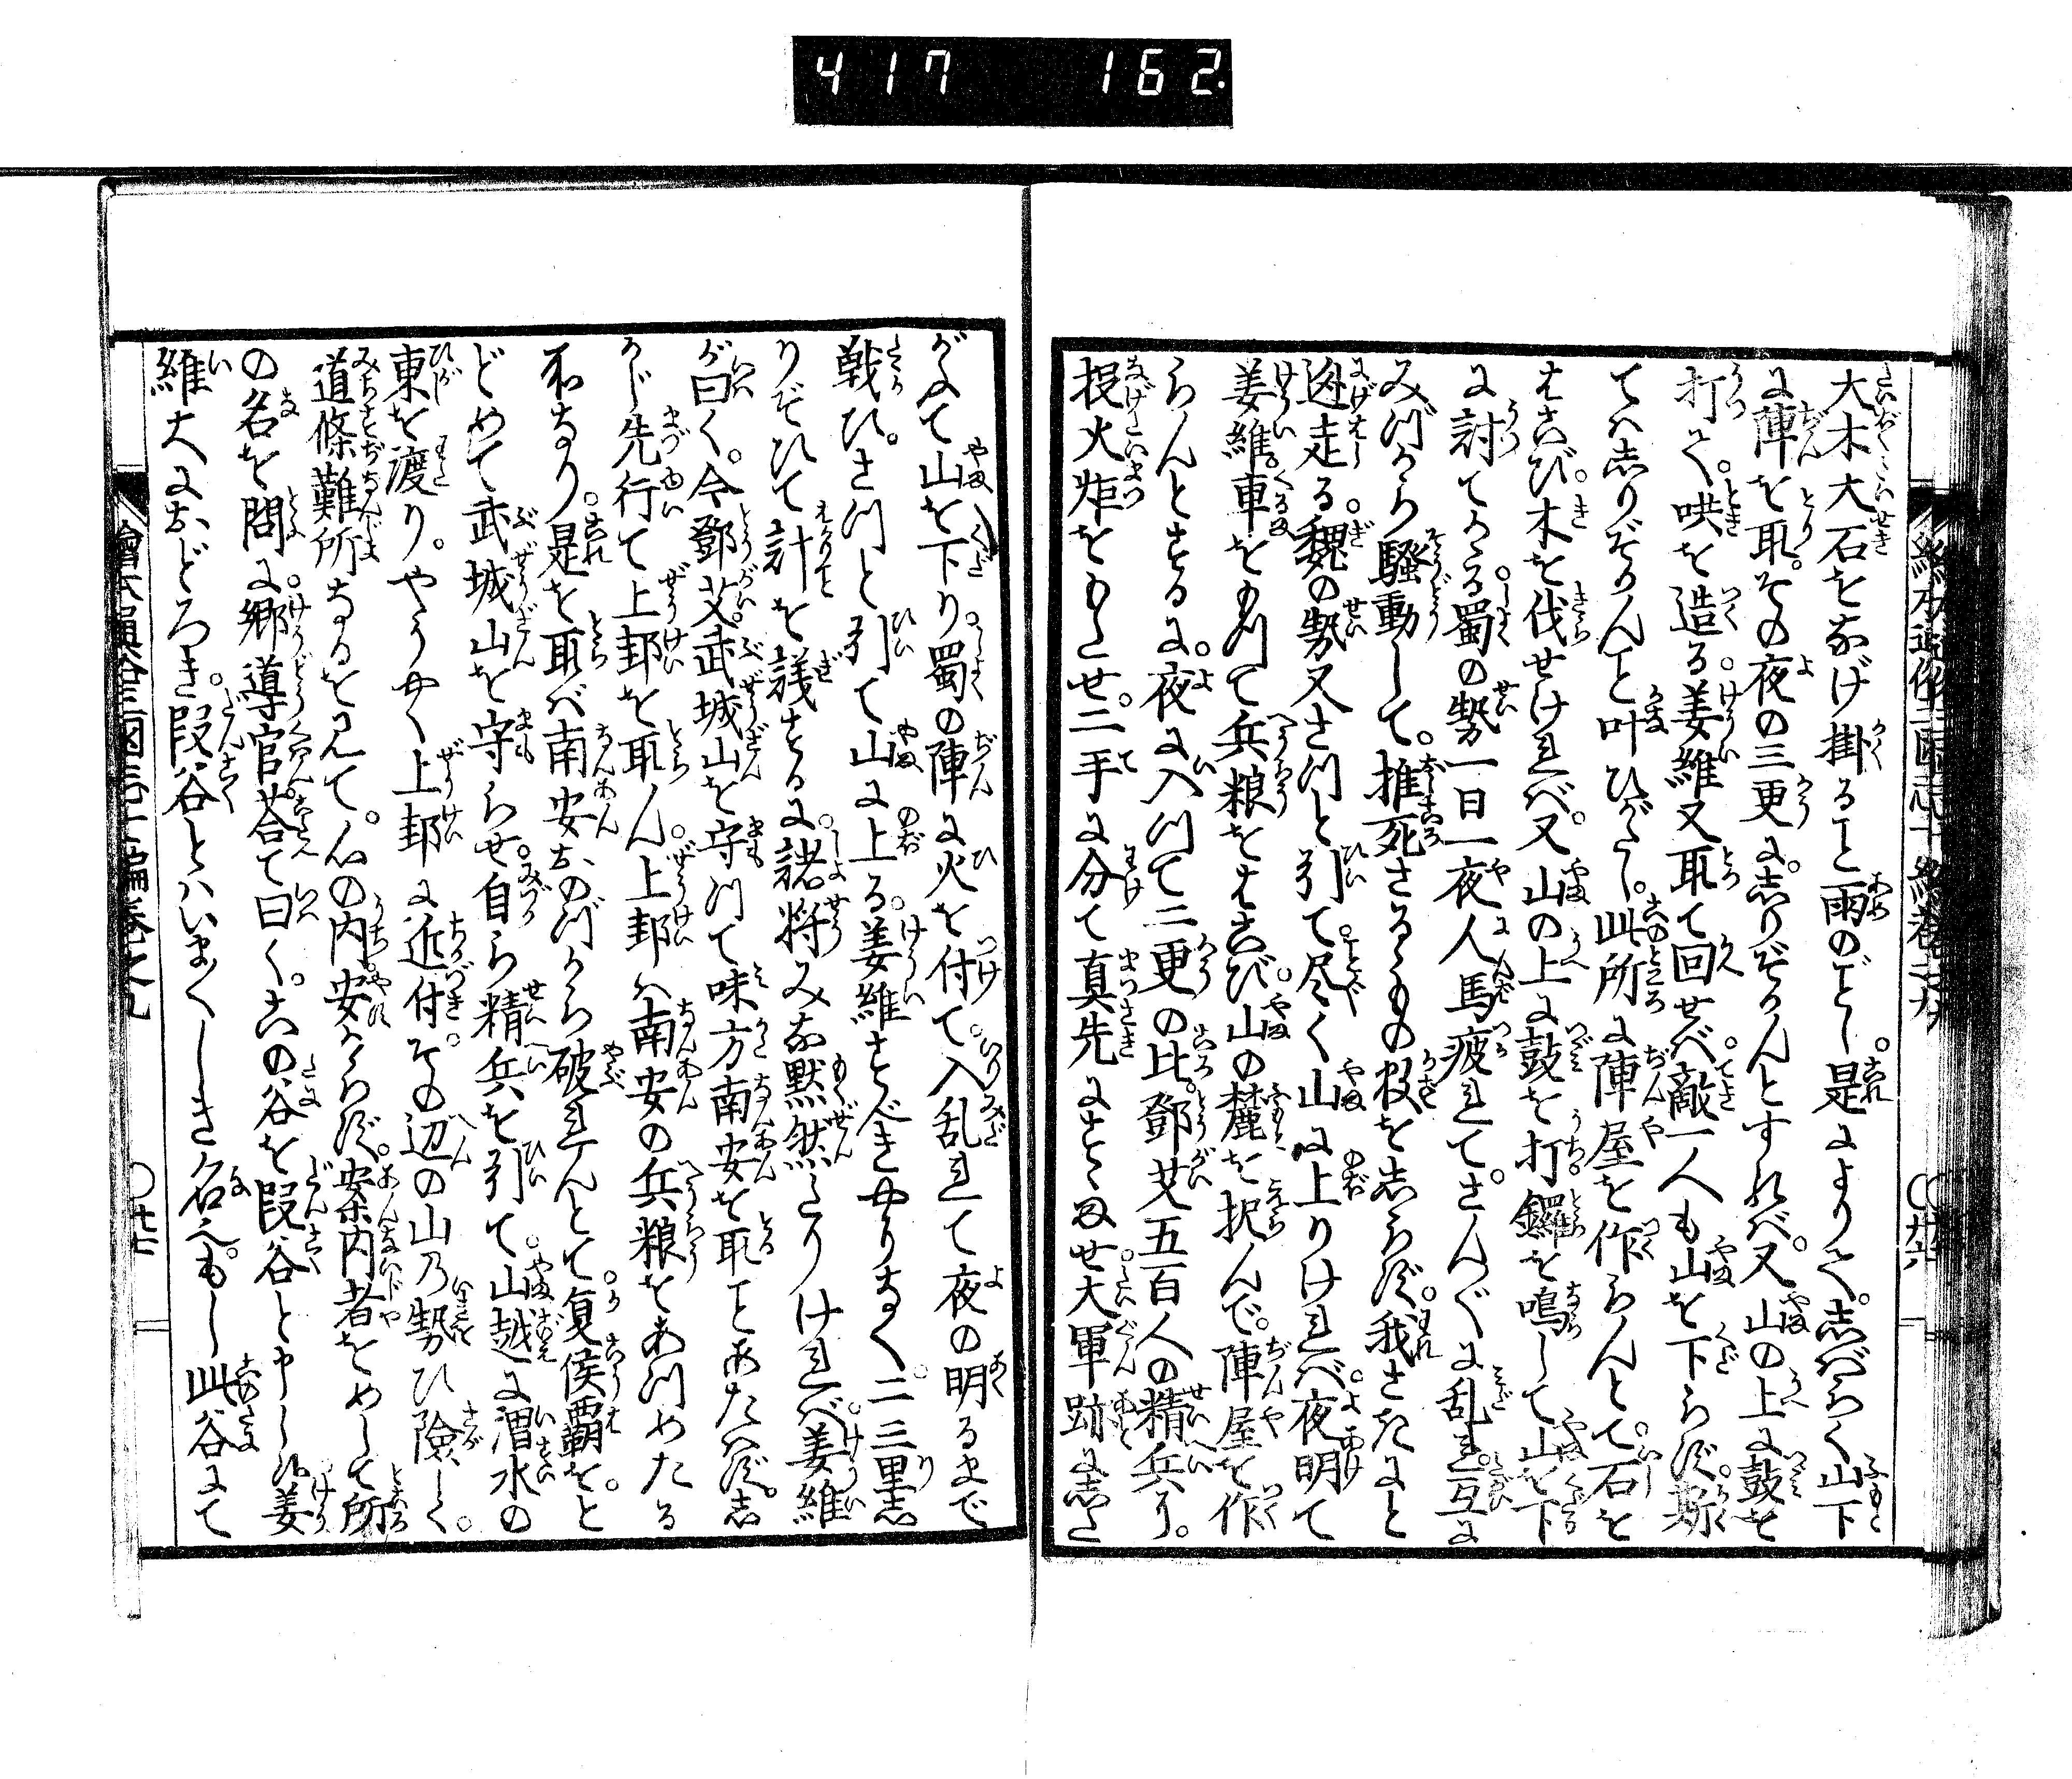 417 162.
大木大石をなげ掛ること雨のごとし。是によりて。志ばらく山下
に陣を取。その夜の三更に。志りぞかんとすれば。又山の上に鼓を
打て。哄を造る。姜維又取て回せば。敵一人も山を下らず。斯
て志りぞかんこと叶ひがたし。此所に陣屋を作らんとて。石を
はこび。木を伐せければ。又山の上に鼓を打。鑼を鳴して山を下
に討てかゝる。蜀の勢一日一夜人馬疲れて。さんざんに乱れ。互に
みづから騒動して。推死さるゝもの数を志らず。我さきにと
迯走る。魏の勢又さつと引て。尽く山に上りければ。夜明て
姜維。車をもつて兵粮をはこび。山の麓を択んで。陣屋を作
らんとする に。夜に入つて二更の比。鄧艾五百人の精兵に。
投火炬をもたせ。二手に分て真先にすゝませ。大軍跡に志た
がふて山を下り。蜀の陣に火を付て。入乱れて夜の明るまで
戦ひ。さつと引て山に上る。姜維すべきやうなく。二三里志
りぞひて計を議するに。諸将みな默然たりければ。姜維
が曰く。今鄧艾。武城山を守つて味方南安を取ことあたはず。志
かじ先行て上邽を取ん。上邽ハ南安の兵粮をあつめたる
所なり。是を取ば南安おのづから破れんとて。夏侯覇をと
どめて武城山を守らせ。自ら精兵を引て。山越に渭水の
東を渡り。やうやく上邽に近付。その辺の山乃勢ひ険しく。
道條難所なるを見て。心の内安からず。案内者をめして所
の名を問に。郷導官荅て曰く。此の谷を段谷と申し候。姜
維大におどろき。段谷とハいまハしき名也。もし此谷にて